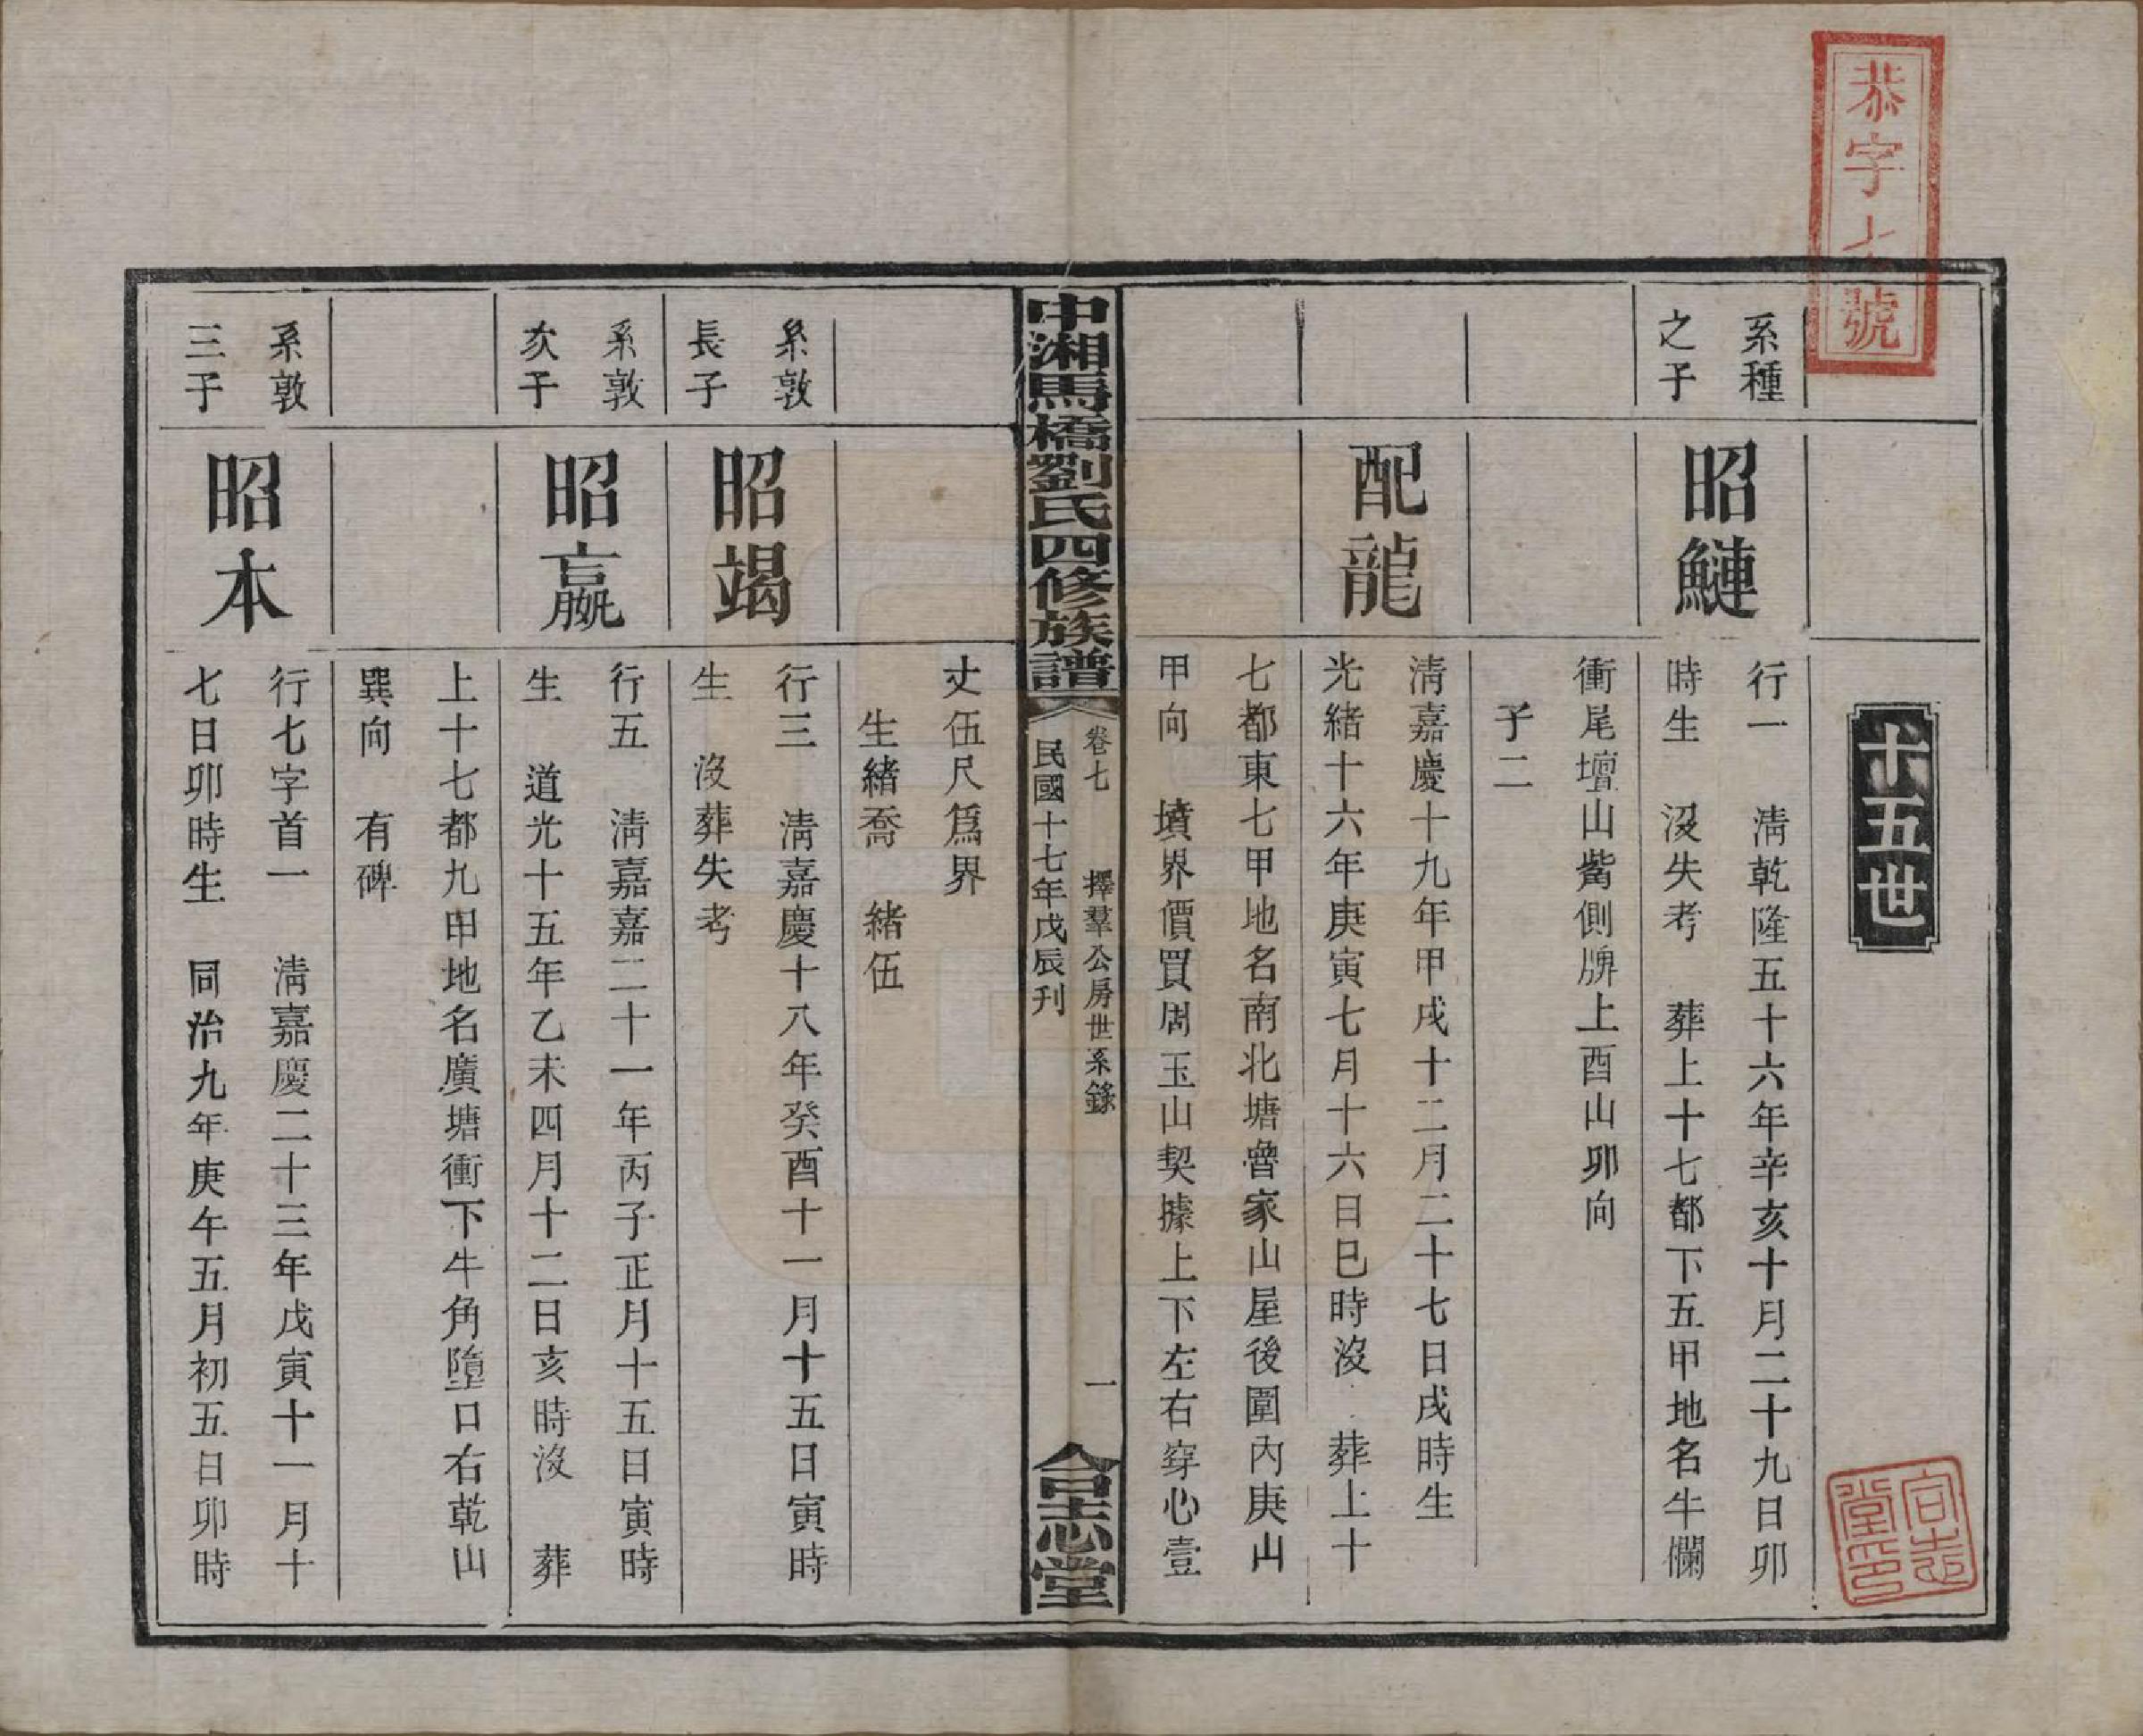 恭字七號
十五世
系種
之子
昭鰱
行一　淸乾隆五十六年辛亥十月二十九日卯
時生　沒失考　葬上十七都下五甲地名牛欄
衝尾壇山觜側牌上酉山卯向
子二
配龍
淸嘉慶十九年甲戌十二月二十七日戌時生
光緒十六年庚寅七月十六日巳時沒　葬上十
七都東七甲地名南北塘魯家山屋後圍內庚山
甲向　墳界價買周玉山契據上下左右穿心壹
中湘馬橋劉氏四修族譜
卷七　擇羣公房世系錄　一
民國十七年戊辰刊
合志堂
丈伍尺爲界
生緒喬　緒伍
系敦
長子
昭竭
行三　淸嘉慶十八年癸酉十一月十五日寅時
生　沒葬失考
系敦
次子
昭嬴
行五　淸嘉嘉二十一年丙子正月十五日寅時
生　道光十五年乙未四月十二日亥時沒　葬
上十七都九甲地名廣塘衝下牛角墮口右乾山
巽向　有碑
系敦
三子
昭本
行七字首一　淸嘉慶二十三年戊寅十一月十
七日卯時生　同治九年庚午五月初五日卯時
合志
堂印